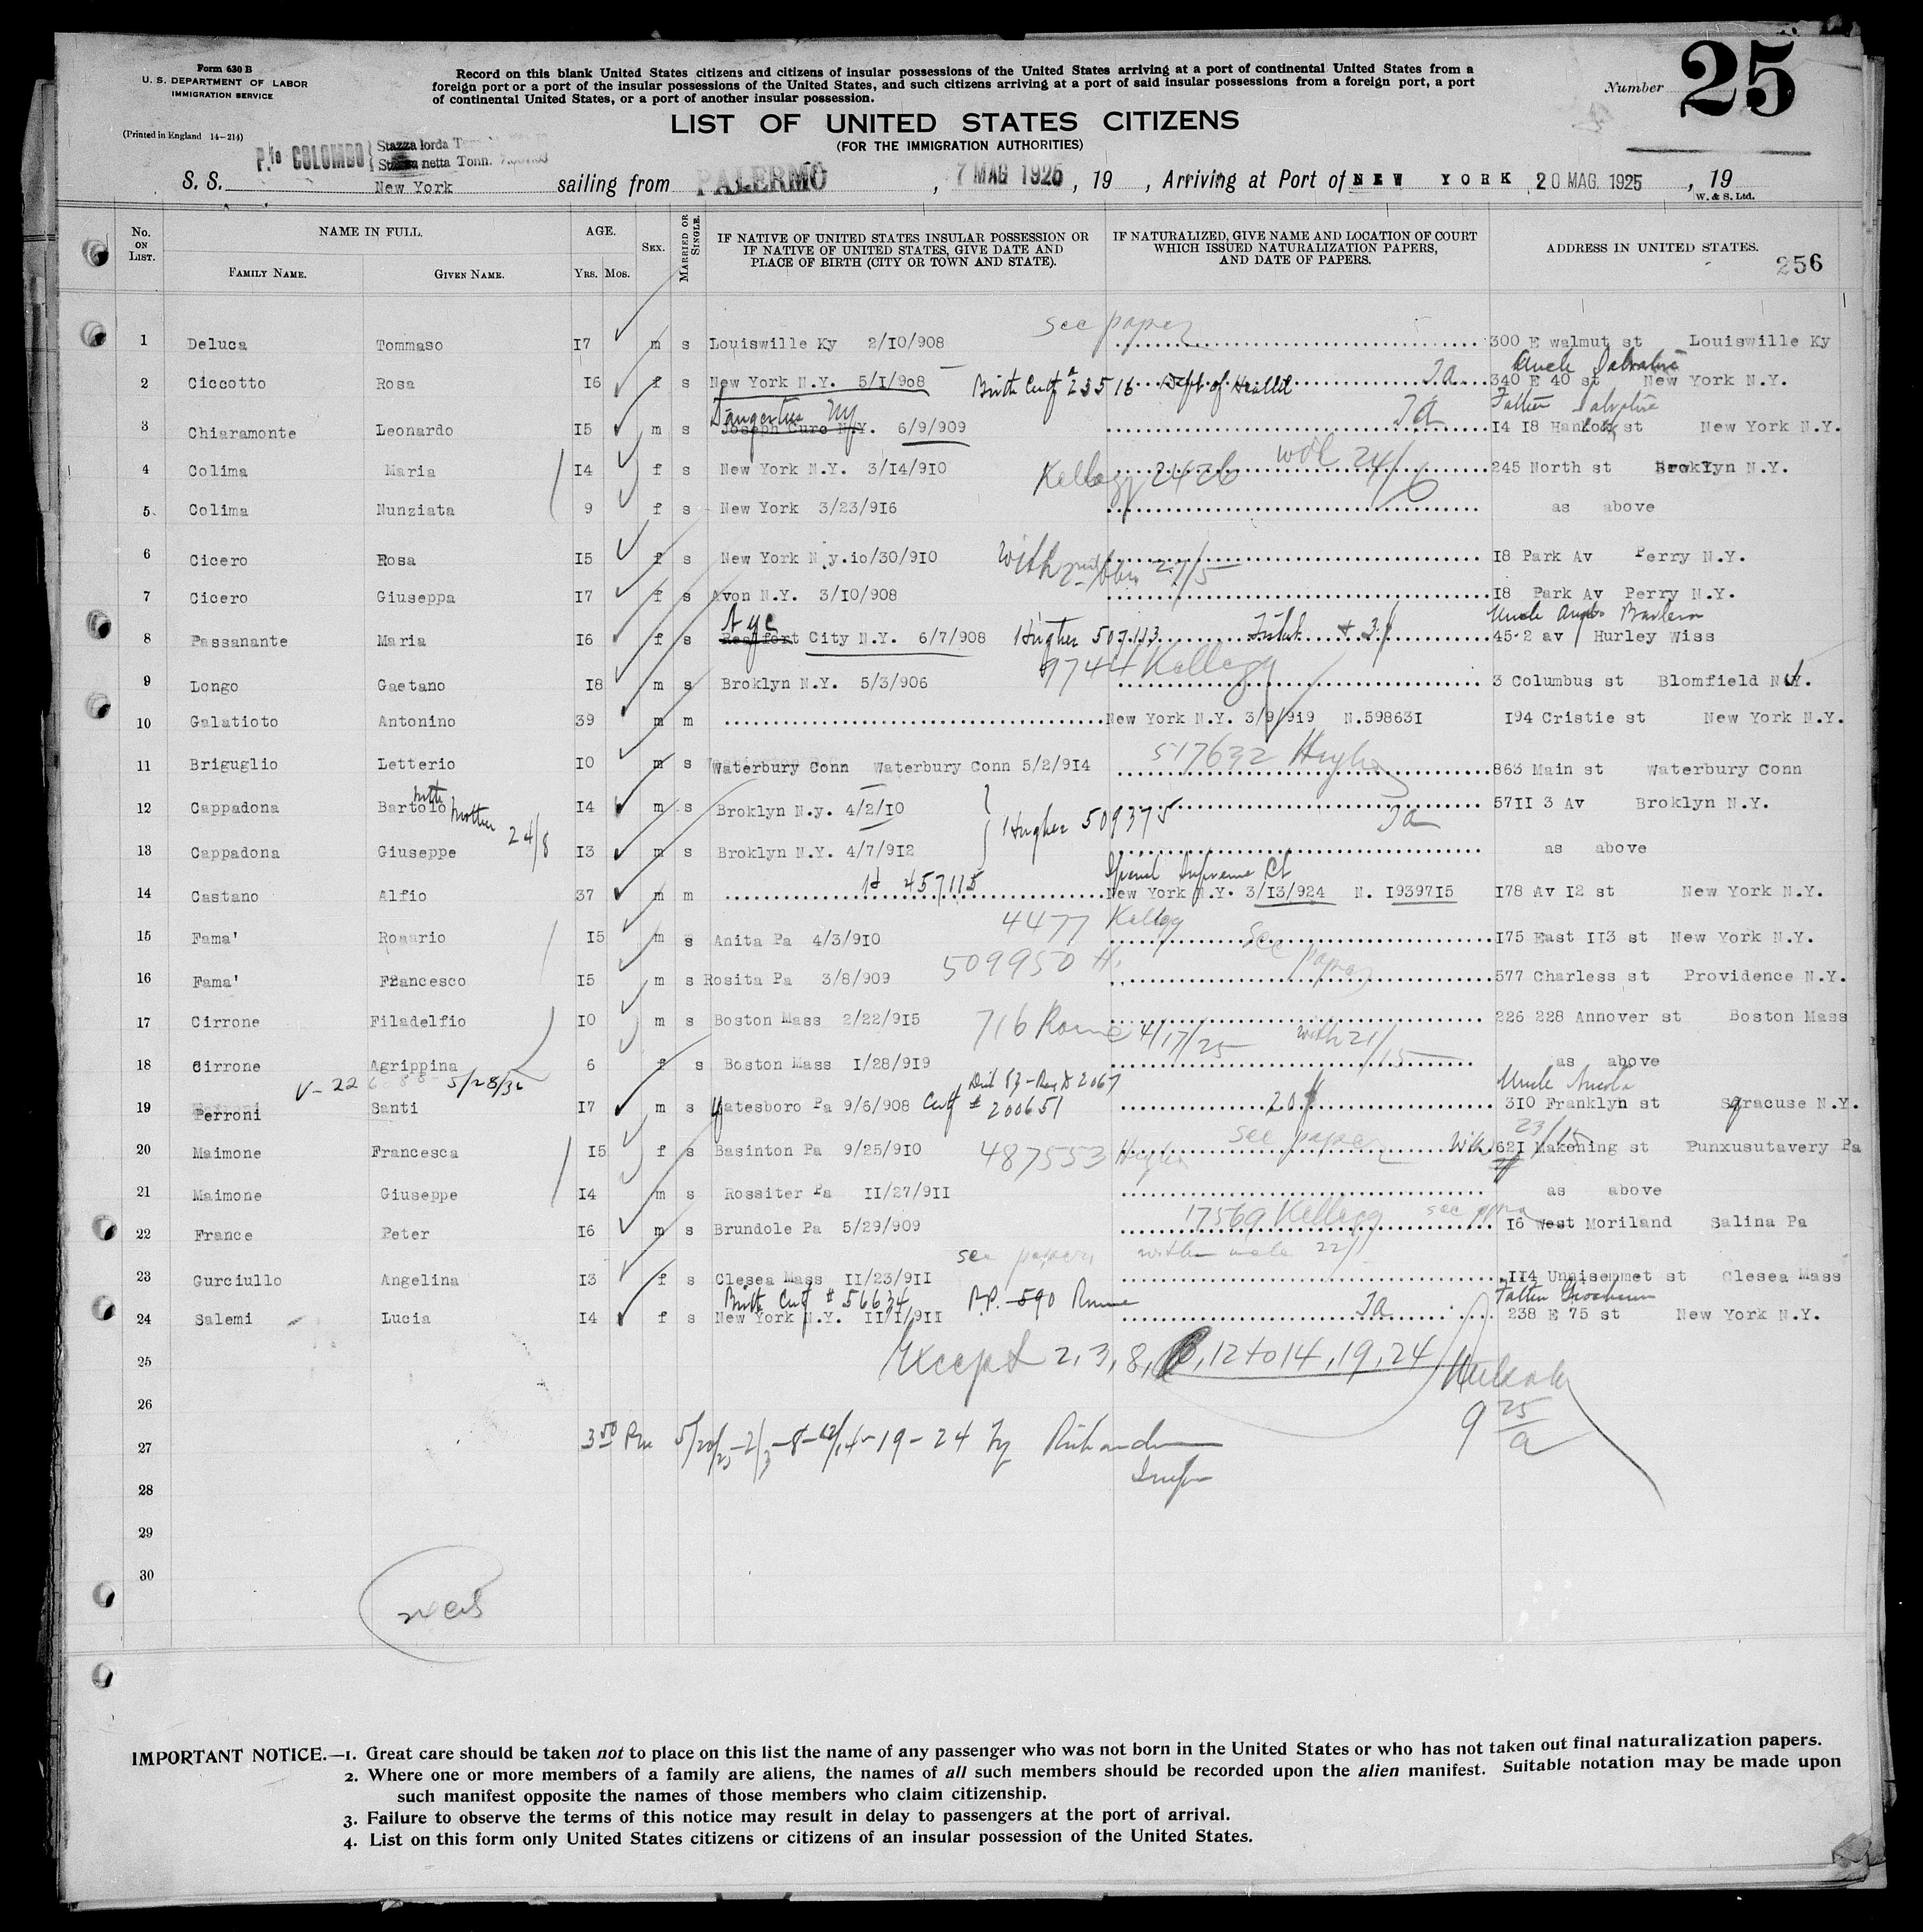 Form 630 B
U. S. DEPARTMENT OF LABOR
IMMIGRATION SERVICE
(Printed in England 14-214)
Record on this blank United States citizens and citizens of insular possessions of the United States arriving at a port of continental United States from a
foreign port or a port of the insular possessions of the United States, and such citizens arriving at a port of said insular possessions from a foreign port, a port
of continental United States, or a port of another insular possession.
Number 25
LIST OF UNITED STATES CITIZENS
(FOR THE IMMIGRATION AUTHORITIES)
P.fo COLOMBO Stazza lorda
Stazza netta Tonn.
S. S. New York sailing from PALERMO, 7 MAG 1925, 19 , Arriving at Port of NEW YORK 20 MAG. 1925, 19
W. & S. Ltd.
No. ON LIST. NAME IN FULL. AGE. SEX. MARRIED OR SINGLE. IF NATIVE OF UNITED STATES INSULAR POSSESSION OR IF NATIVE OF UNITED STATES, GIVE DATE AND PLACE OF BIRTH (CITY OR TOWN AND STATE). IF NATURALIZED, GIVE NAME AND LOCATION OF COURT WHICH ISSUED NATURALIZATION PAPERS, AND DATE OF PAPERS. ADDRESS IN UNITED STATES.
FAMILY NAME. GIVEN NAME. YRS. MOS. 256
see paper
1 Deluca Tommaso I7 m s Louiswille Ky 2/IO/908 300 E walmut st Louiswille Ky
Uncle Salvatore
2 Ciccotto Rosa I6 f s New York N.Y. 5/I/908 Birth Certf # 23516 Dept of Health 340 E 40 st New York N.Y.
Father Salvatore
3 Chiaramonte Leonardo I5 m s Joseph Curo N.Y. 6/9/909 I4 I8 st New York N.Y.
4 Colima Maria I4 f s New York N.Y. 3/I4/9IO Kellogg 2426 24/6 245 North st Broklyn N.Y.
5 Colima Nunziata 9 f s New York 3/23/9I6 as above
6 Cicero Rosa I5 f s New York N.y.io/30/9IO With 18 Park Av Perry N.Y.
7 Cicero Giuseppa I7 f s Avon N.Y. 3/IO/908 I8 Park Av Perry N.Y.
Uncle
8 Passanante Maria I6 f s City N.Y. 6/7/908 Hughes 507113 45-2 av Hurley Wiss
9744 Kellogg
9 Longo Gaetano I8 m s Broklyn N.Y. 5/3/906 3 Columbus st Blomfield N.J.
10 Galatioto Antonino 39 m m New York N.Y. 3/9/9i9 N.59863I I94 Cristie st New York N.Y.
517632 Hughes
11 Briguglio Letterio IO m s Waterbury Conn Waterbury Conn 5/2/9I4 863 Main st Waterbury Conn
12 Cappadona Bartolo I4 m s Broklyn N.y. 4/2/IO 57II 3 Av Broklyn N.Y.
with mother 24/8 Hughes 509375
13 Cappadona Giuseppe I3 m s Broklyn N.Y. 4/7/9I2 as above
457115 Supreme Ct
14 Castano Alfio 37 m m New York N.Y. 3/I3/924 N. I9397I5 I78 Av I2 st New York N.Y.
4477 Kellogg
15 Fama' Rosario I5 m s Anita Pa 4/3/9IO see paper I75 East II3 st New York N.Y.
509950 H.
16 Fama' Francesco I5 m s Rosita Pa 3/8/909 577 Charless st Providence N.Y.
17 Cirrone Filadelfio IO m s Boston Mass 2/22/9I5 716 Rome 4/17/25 with 21/15 226 228 Annover st Boston Mass
18 Cirrone Agrippina 6 f s Boston Mass I/28/9I9 as above
5/28/32 Uncle Nicola
19 Perroni Santi I7 m s Yatesboro Pa 9/6/908 Certf # 200651 3IO Franklyn st Syracuse N.Y.
see paper
20 Maimone Francesca I5 f s Basinton Pa 9/25/9IO 487553 Hughes 62I Makoning st Punxusutavery Pa
21 Maimone Giuseppe I4 m s Rossiter Pa II/27/9II as above
17569 Kellogg
22 France Peter I6 m s Brundole Pa 5/29/909 I6 west Moriland Salina Pa
see papers
23 Gurciullo Angelina I3 f s Clesea Mass II/23/9II II4 Unnisemmet st Clesea Mass
Birth Certf # 56634 P.P. 590 Rome Father
24 Salemi Lucia I4 f s New York N.Y. II/I/9II 238 E 75 st New York N.Y.
25 Except 2, 3, 8, 12 to 14, 19, 24
26
27
28
29
30
IMPORTANT NOTICE.—1. Great care should be taken not to place on this list the name of any passenger who was not born in the United States or who has not taken out final naturalization papers.
2. Where one or more members of a family are aliens, the names of all such members should be recorded upon the alien manifest. Suitable notation may be made upon
such manifest opposite the names of those members who claim citizenship.
3. Failure to observe the terms of this notice may result in delay to passengers at the port of arrival.
4. List on this form only United States citizens or citizens of an insular possession of the United States.